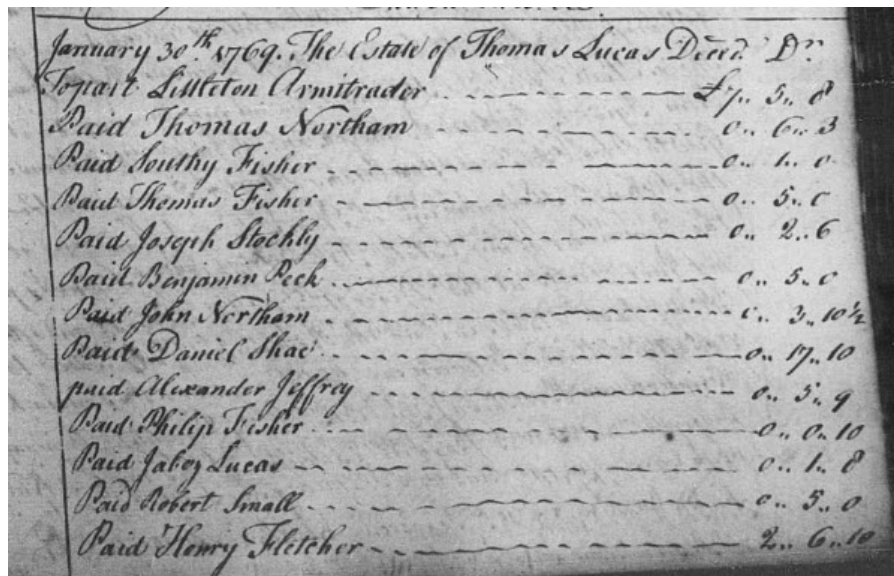 January 30th. 1769. The Estate of Thomas Lucas Decd. Dr.
To paid Littleton Armitrader £7.. 5.. 8
Paid Thomas Northam 0.. 6.. 3
Paid Southy Fisher 0.. 1.. 0
Paid Thomas Fisher 0.. 5.. 0
Paid Joseph Stockly 0.. 2.. 6
Paid Benjamin Peck 0.. 5.. 0
Paid John Northam 0.. 3.. 10½
Paid Daniel Shae 0.. 17.. 10
paid Alexander Jeffrey 0.. 5.. 9
Paid Philip Fisher 0.. 0.. 10
Paid Jabez Lucas 0.. 1.. 8
Paid Robert Small 0.. 5.. 0
Paid Henry Fletcher 2.. 6.. 10